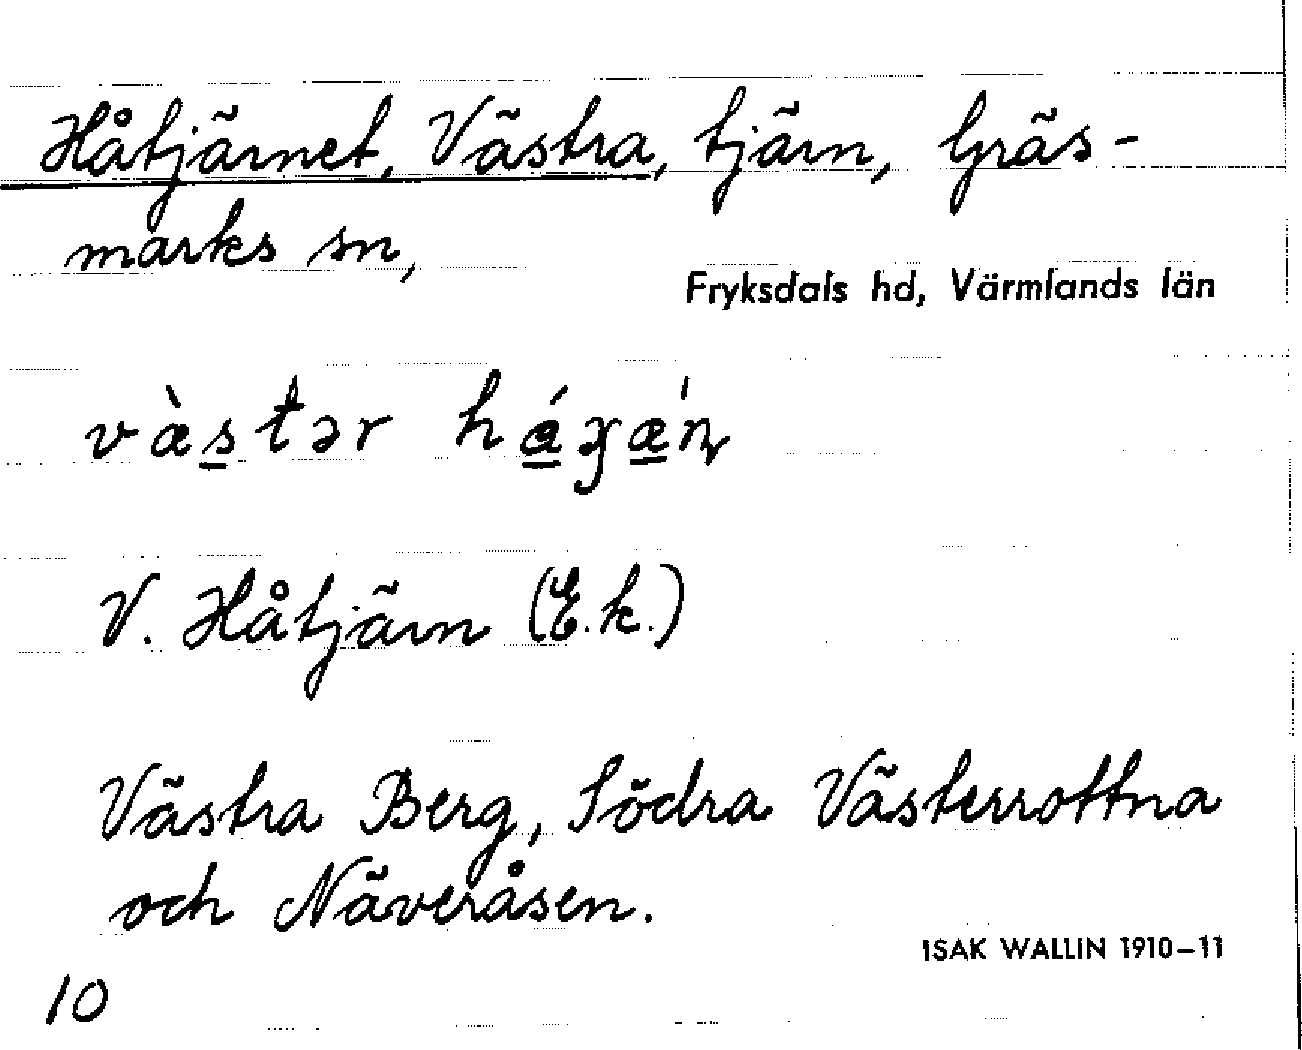 Håtjärnet, Västra, tjärn, Gräs-
marks sn,
Fryksdals hd, Värmlands län
V. Håtjärn (E.k.)
Västra Berg, Södra Västerrottna
och Näveråsen.
ISAK WALLIN 1910–11
10